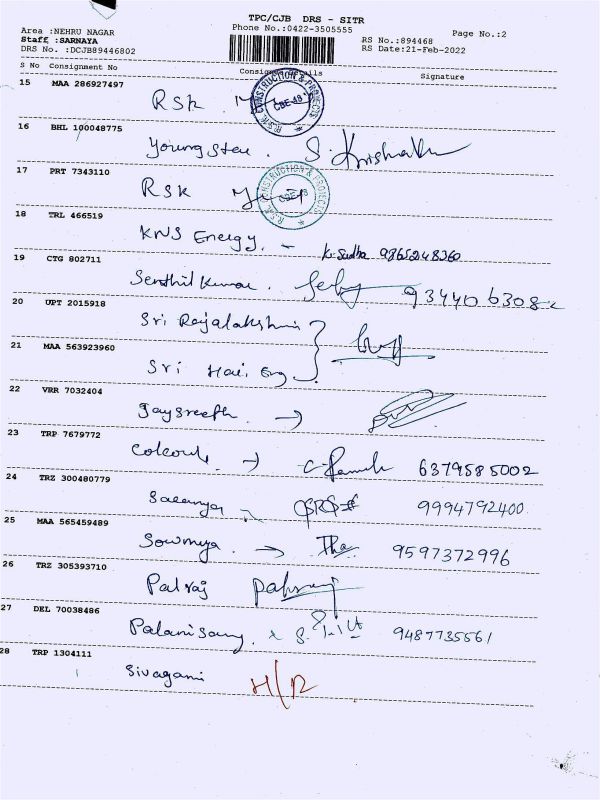 TPC/CJB DRS - SITR
Area :NEHRU NAGAR Phone No.:0422-3505555 Page No.:2
Staff :SARNAYA RS No.:894468
DRS No. :DCJB89446802 RS Date:21-Feb-2022
S No Consignment No Consignee Details Signature
15 MAA 286927497
RSK
R.S.K. CONSTRUCTION & PROJECTS
CBE-48
16 BHL 100048775
Youngster. S. Krishna
17 PRT 7343110
RSK
R.S.K. CONSTRUCTION & PROJECTS
18 TRL 466519
KNS Energy. - K. Sudha 9865248360
19 CTG 802711
Senthil Kumar.
20 UPT 2015918
Sri Rajalakshmi
21 MAA 563923960
Sri Hai. Eng
22 VRR 7032404
Jaysreeth →
23 TRP 7679772
→ 6379585002
24 TRZ 300480779
Saranya 9994792400
25 MAA 565459489
Sowmya. → 9597372996
26 TRZ 305393710
Palraj Palraj
27 DEL 70038486
Palanisamy. 9487735561
28 TRP 1304111
Sivagami H/R